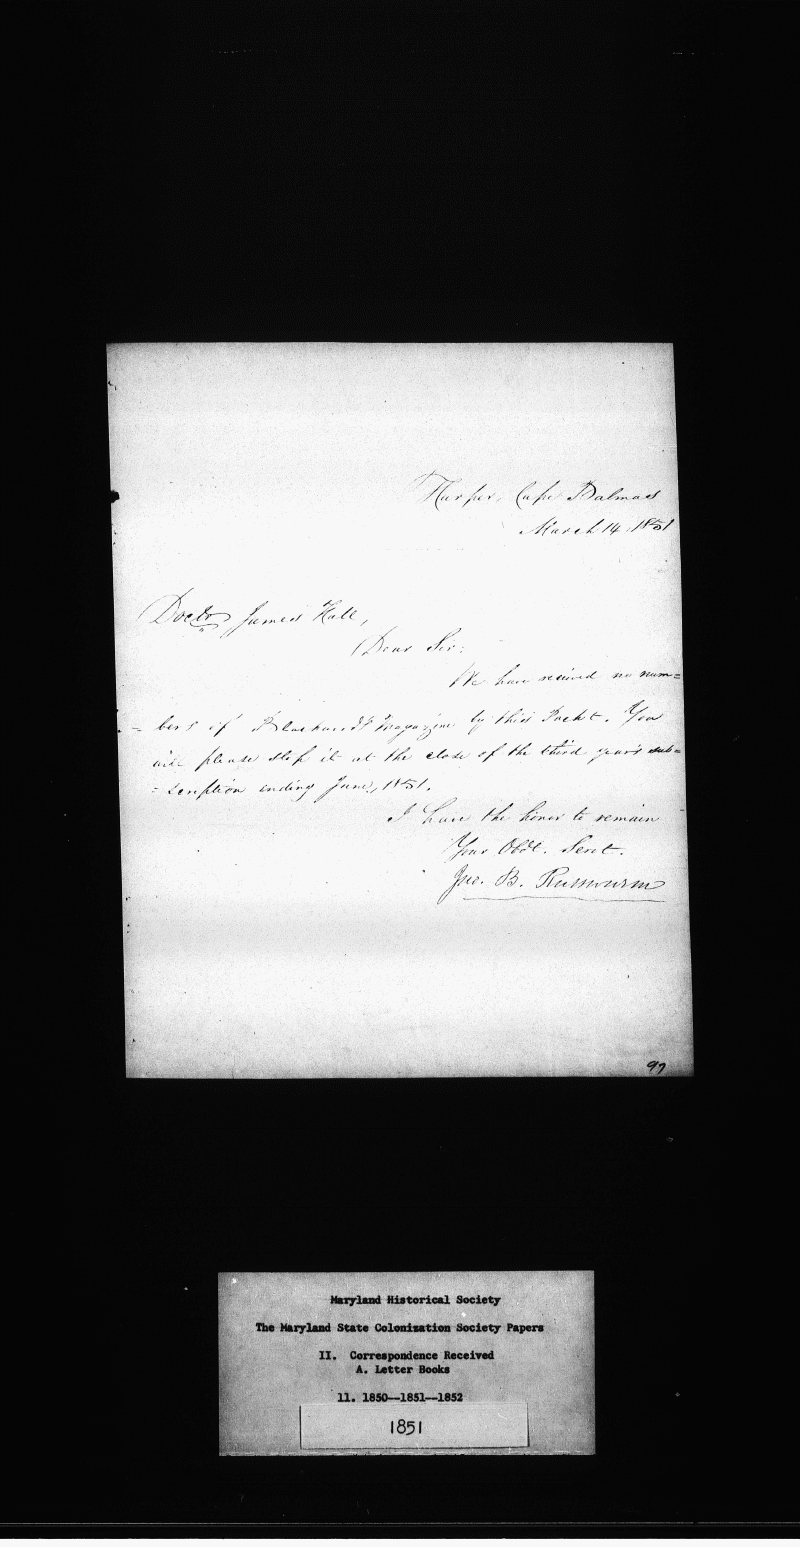 Harper, Cape Palmas
March 14, 1851
Doctor James Hall,
Dear Sir:
We have received no num=
=bers of Blackwood's Magazine by this Packt. You
will please stop it at the close of the third year's sub=
=scription ending June, 1851.
I have the honor to remain
Your Obdt. Servt.
Jno. B. Russwurm
97
Maryland Historical Society
The Maryland State Colonization Society Papers
II. Correspondence Received
A. Letter Books
11. 1850--1851--1852
1851